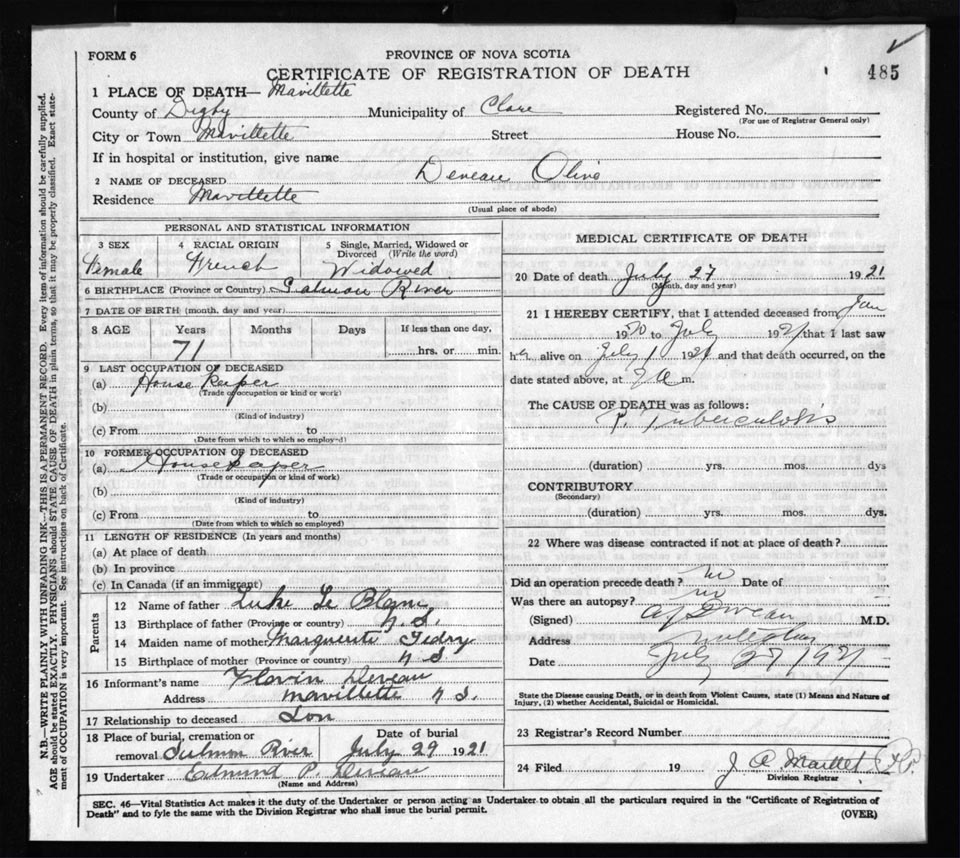 FORM 6
PROVINCE OF NOVA SCOTIA
CERTIFICATE OF REGISTRATION OF DEATH
485
1 PLACE OF DEATH— Mavillette
County of Digby Municipality of Clare Registered No.
(For use of Registrar General only)
City or Town Mavillette Street House No.
If in hospital or institution, give name
2 NAME OF DECEASED Deveau Olive
Residence Mavillette
(Usual place of abode)
PERSONAL AND STATISTICAL INFORMATION
3 SEX 4 RACIAL ORIGIN 5 Single, Married, Widowed or Divorced (Write the word)
Female French Widowed
6 BIRTHPLACE (Province or Country) Salmon River
7 DATE OF BIRTH (month, day and year)
8 AGE Years Months Days If less than one day,
71 hrs. or min.
9 LAST OCCUPATION OF DECEASED
(a) House Keeper
(Trade or occupation or kind or work)
(b)
(Kind of industry)
(c) From to
(Date from which to which so employed)
10 FORMER OCCUPATION OF DECEASED
(a) Housekeaper
(Trade or occupation or kind of work)
(b)
(Kind of industry)
(c) From to
(Date from which to which so employed)
11 LENGTH OF RESIDENCE (In years and months)
(a) At place of death
(b) In province
(c) In Canada (if an immigrant)
Parents
12 Name of father Luke Le Blanc
13 Birthplace of father (Province or country) N.S.
14 Maiden name of mother Marguerite
15 Birthplace of mother (Province or country) N S
16 Informant's name Deveau
Address Mavillette N S.
17 Relationship to deceased Son
18 Place of burial, cremation or Date of burial
removal Salmon River July 29 1921
19 Undertaker Edmund P. Deveau
(Name and Address)
MEDICAL CERTIFICATE OF DEATH
20 Date of death July 27 1921
(Month, day and year)
21 I HEREBY CERTIFY, that I attended deceased from Jan
1920 to July 1921 that I last saw
her alive on July 1 1921 and that death occurred, on the
date stated above, at m.
The CAUSE OF DEATH was as follows:
P. Tuberculosis
(duration) yrs. mos. dys
CONTRIBUTORY
(Secondary)
(duration) yrs. mos. dys.
22 Where was disease contracted if not at place of death?
Did an operation precede death? no Date of
Was there an autopsy? no
(Signed) Deveau M.D.
Address
Date July 27 1921
State the Disease causing Death, or in death from Violent Causes, state (1) Means and Nature of
Injury, (2) whether Accidental, Suicidal or Homicidal.
23 Registrar's Record Number
24 Filed 19 J A Maillet
Division Registrar
SEC. 46—Vital Statistics Act makes it the duty of the Undertaker or person acting as Undertaker to obtain all the particulars required in the "Certificate of Registration of
Death" and to fyle the same with the Division Registrar who shall issue the burial permit.
(OVER)
N.B.—WRITE PLAINLY WITH UNFADING INK—THIS IS A PERMANENT RECORD. Every item of information should be carefully supplied.
AGE should be stated EXACTLY. PHYSICIANS should STATE CAUSE OF DEATH in plain terms, so that it may be properly classified. Exact state-
ment of OCCUPATION is very important. See instructions on back of Certificate.